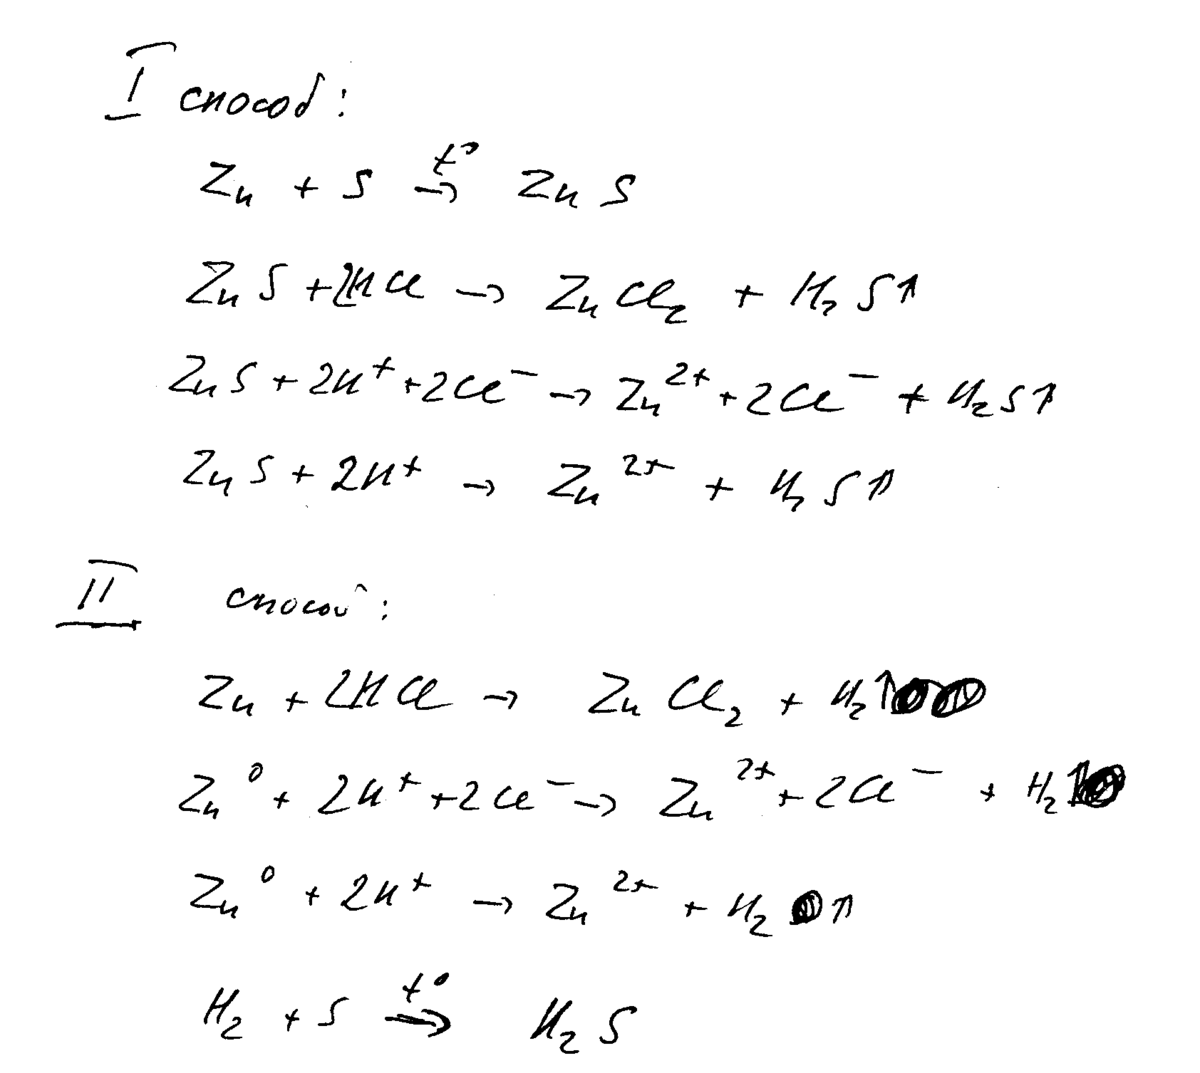 I способ:
Zn + S t°→ ZnS
ZnS + 2HCl → ZnCl₂ + H₂S↑
ZnS + 2H⁺ + 2Cl⁻ → Zn²⁺ + 2Cl⁻ + H₂S↑
ZnS + 2H⁺ → Zn²⁺ + H₂S↑
II способ:
Zn + 2HCl → ZnCl₂ + H₂↑
Zn⁰ + 2H⁺ + 2Cl⁻ → Zn²⁺ + 2Cl⁻ + H₂↑
Zn⁰ + 2H⁺ → Zn²⁺ + H₂↑
H₂ + S t°→ H₂S